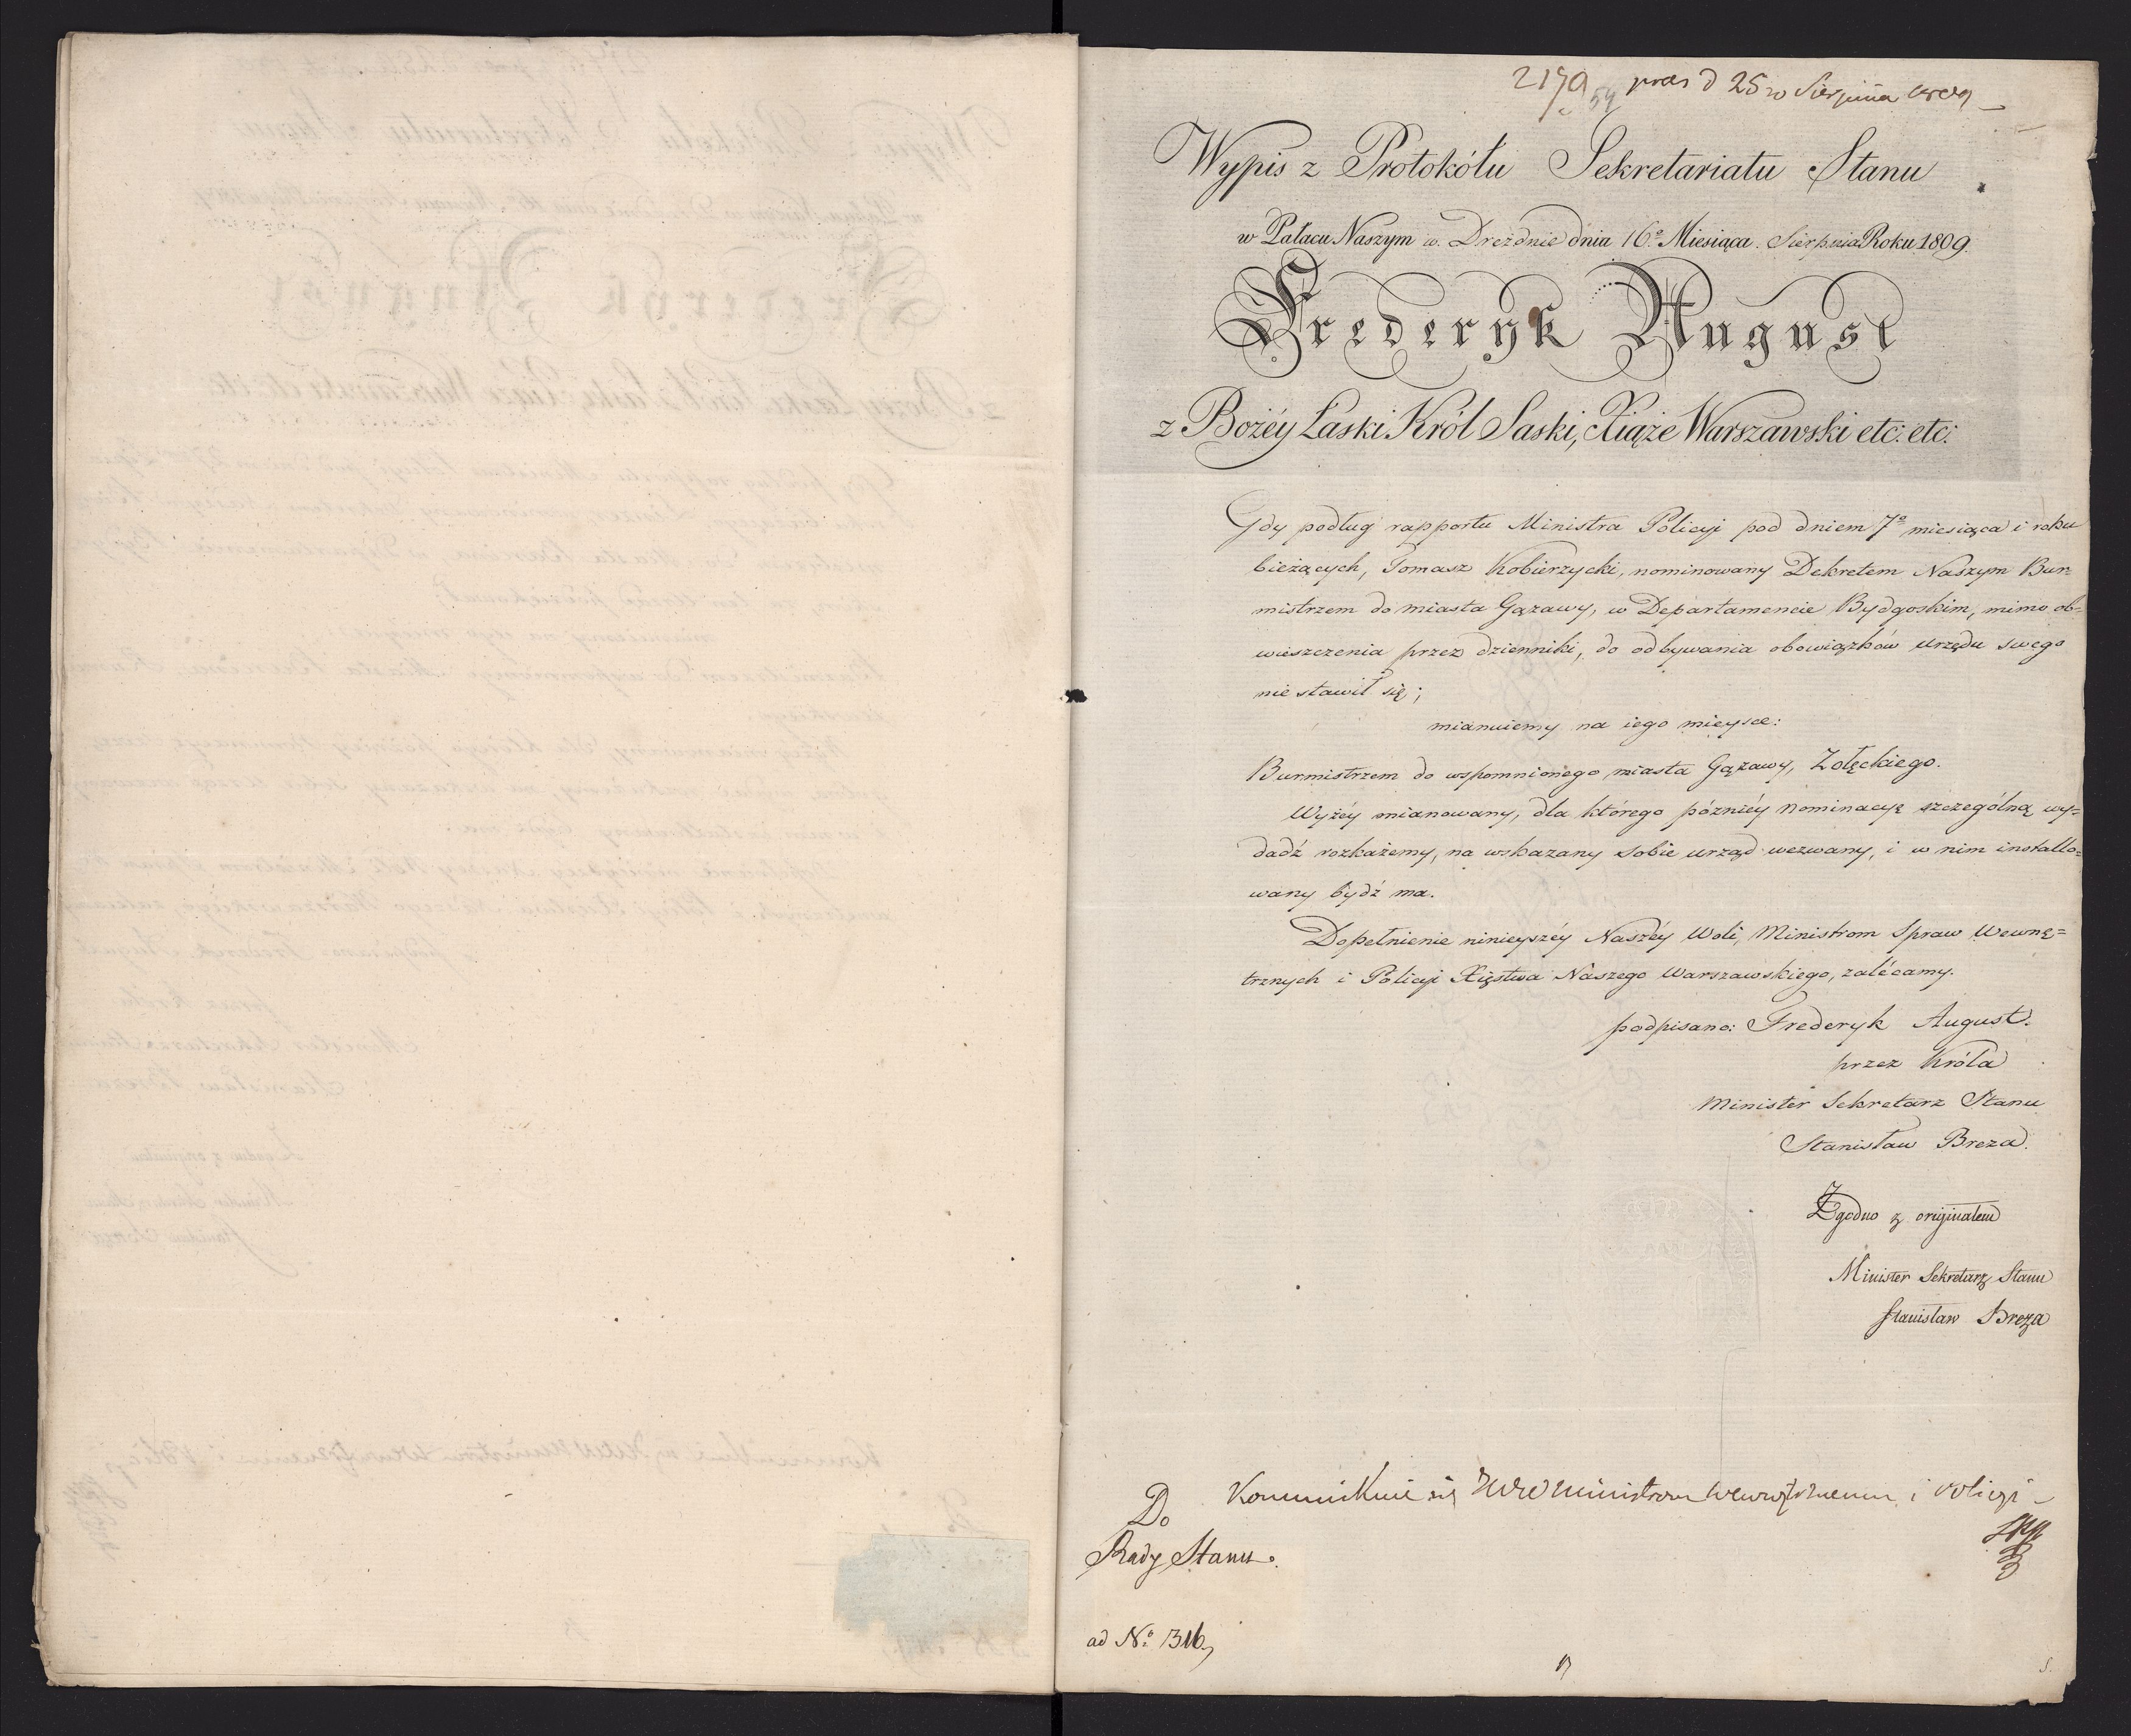 praes d 25 Sierpnia 1809
Wypis z Protokółu Sekretariatu Stanu
w Pałacu Naszym w Dreźdnie dnia 16º Miesiąca Sierpnia Roku 1809.
Frederyk August
z Bożéy Łaski Król Saski, Xiąże Warszawski etc: etc:
Gdy podług rapportu Ministra Policyi pod dniem 7º miesiąca i roku
bieżących, Tomasz Kobierzycki, nominowany Dekretem Naszym Bur=
mistrzem do miasta Gązawy, w Departamencie Bydgoskim, mimo ob=
wieszczenia przez dzienniki, do odbywania obowiązków urzędu swego
nie stawił się;
mianuiemy na iego mieysce:
Burmistrzem do wspomnionego miasta Gązawy, Zołęckiego.
Wyżéy mianowany, dla którego późniéy nominacyę szczególną wy=
dadź rozkażemy, na wskazany sobie urząd wezwany, i w nim installo=
wany bydź ma.
Dopełnienie ninieyszéy Naszéy Woli, Ministrom Spraw Wewnę=
trznych i Policyi Xięstwa Naszego Warszawskiego, zalécamy.
podpisano: Frederyk August.
przez Króla
Minister Sekretarz Stanu
Stanisław Breza.
Zgodno z oryginałem
Minister Sekretarz Stanu
Stanisław Breza
Kommunikuie się Ministrom Wewnętrznemu i Policyi
Do
Rady Stanu.
ad Nº 316,